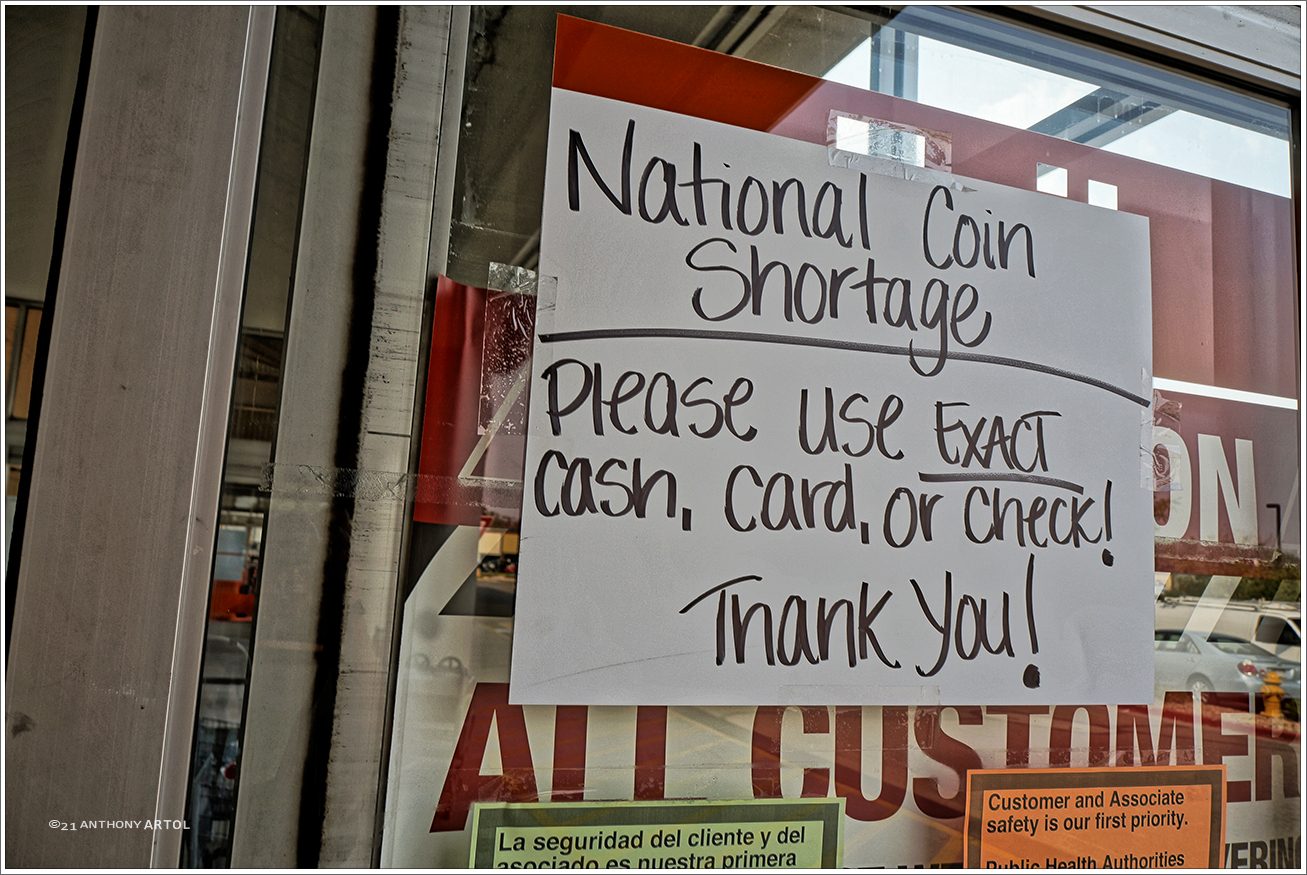 National Coin
Shortage
Please use EXACT
cash, card, or check!
Thank you!
ON
ALL CUSTOMER
La seguridad del cliente y del
asociado es nuestra primera
Customer and Associate
safety is our first priority.
Public Health Authorities
©21 ANTHONY ARTOL